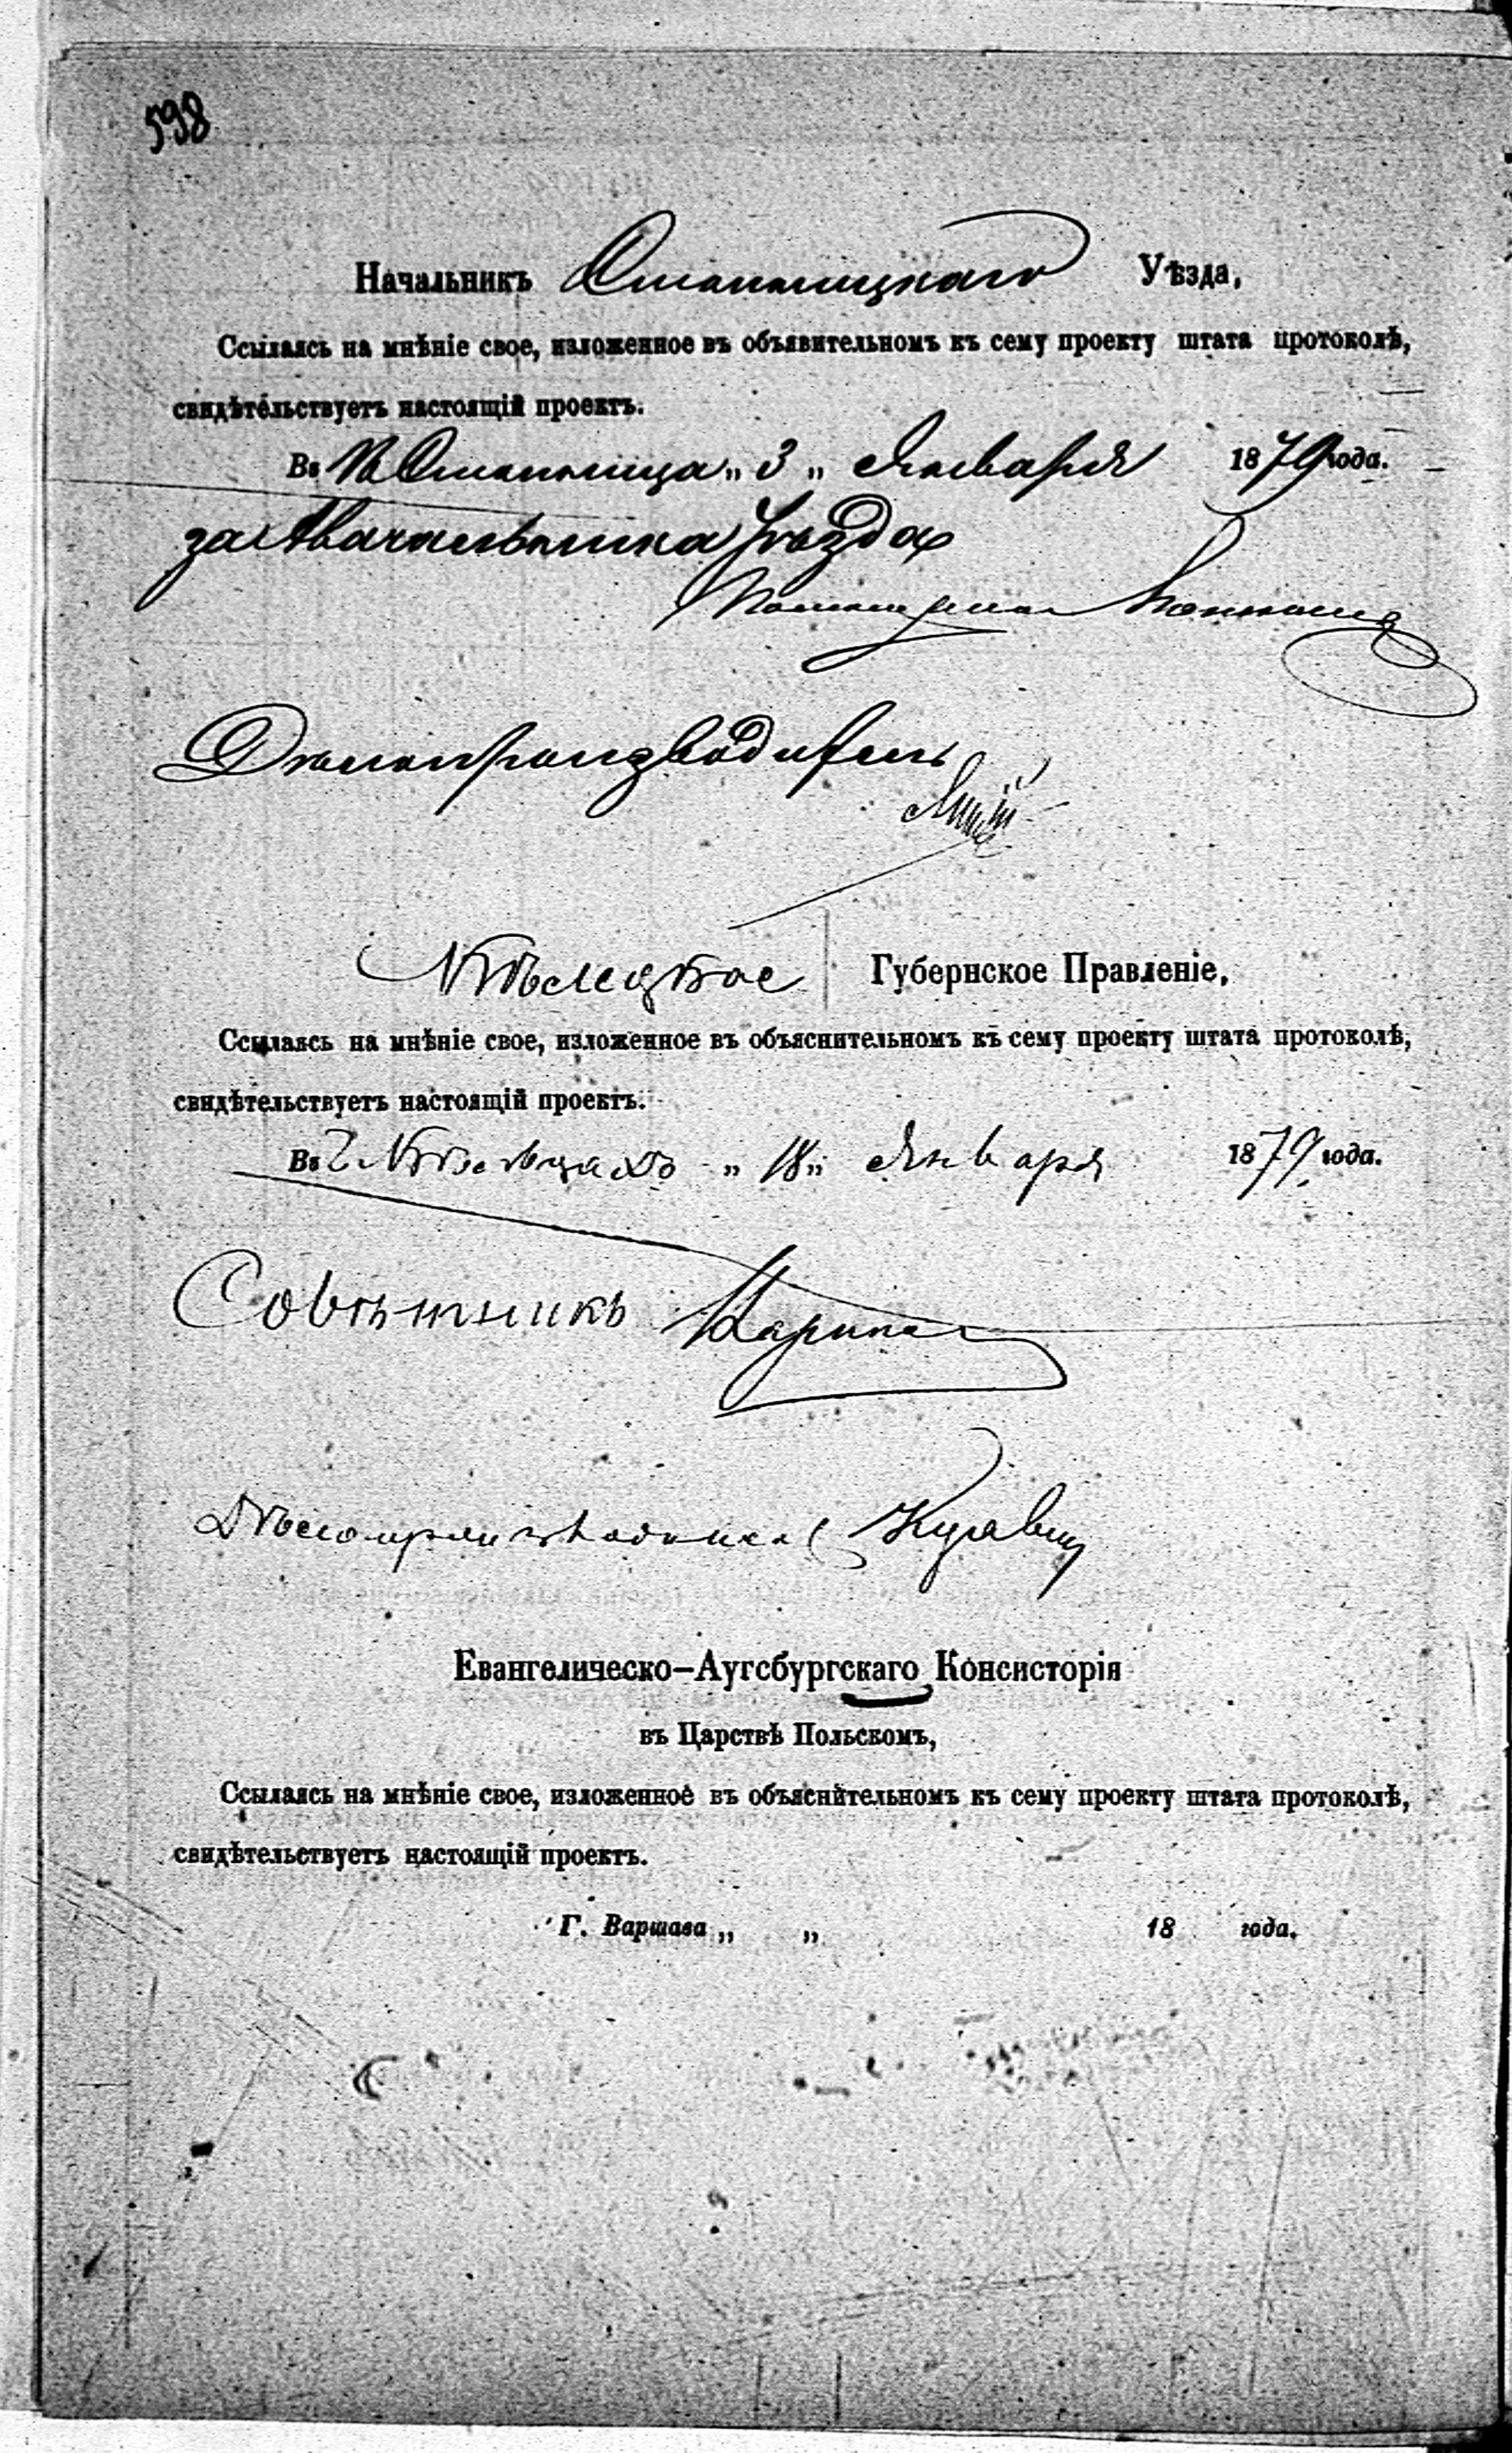 598
Начальникъ Стопницкаго Уѣзда,
Ссылаясь на мнѣніе свое, изложенное въ объявительномъ къ сему проекту штата протоколѣ,
свидѣтельствуетъ настоящій проектъ.
Въ Стопница „ 3 „ Января 1879 года.
за Начальника Уѣзда
Помощникъ
Дѣлопроизводитель
Кѣлецкое Губернское Правленіе,
Ссылаясь на мнѣніе свое, изложенное въ объяснительномъ къ сему проекту штата протоколѣ,
свидѣтельствуетъ настоящій проектъ.
Въ г. Кѣльцахъ „ 18 „ Января 1879 года.
Совѣтникъ
Дѣлопроизводитель
Евангелическо-Аугсбургскаго Консисторія
въ Царствѣ Польскомъ,
Ссылаясь на мнѣніе свое, изложенное въ объяснительномъ къ сему проекту штата протоколѣ,
свидѣтельствуетъ настоящій проектъ.
Г. Варшава „ „ 18 года.